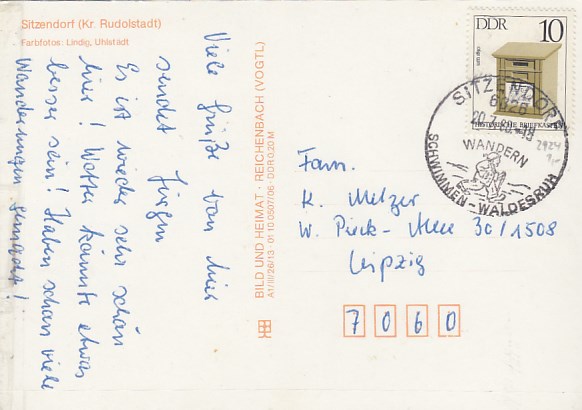 Sitzendorf (Kr. Rudolstadt)
Farbfotos: Lindig, Uhlstädt
Viele Grüße von hier
sendet Jürgen
Es ist wieder sehr schön
hier! Wetter könnte etwas
besser sein! Haben schon viele
Wanderungen gemacht!
BILD UND HEIMAT · REICHENBACH (VOGTL)
A1/III/26/13 · 01 10 0507/06 · DDR 0,20 M
DDR 10
HISTORISCHE BRIEFKÄSTEN
SITZENDORF
6826
20.7.82-15
WANDERN
SCHWIMMEN-WALDESRUH
2924
Fam.
K. Metzer
W. Pieck-Allee 30/1508
Leipzig
7060